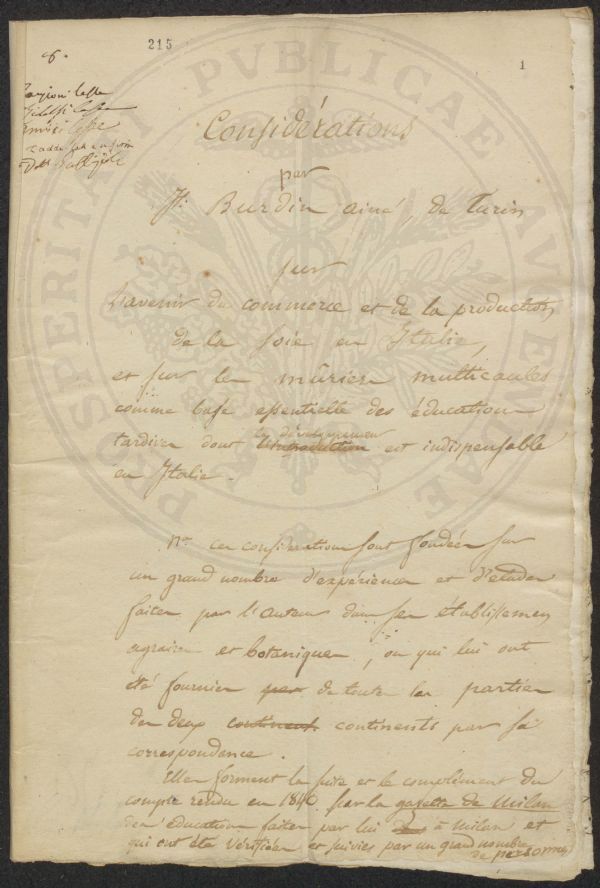 6.
215
1
PROSPERITATI PVBLICAE AVGENDAE
Considérations
par
Burdin ainé, de Turin
sur
L'avenir du commerce et de la production
de la soie en Italie,
et sur les mûriers multicaules
comme base essentielle des éducations
tardives dont le développement est indispensable
en Italie.
Nta ces considérations sont fondées sur
un grand nombre d'expériences et d'études
faites par l'auteur dans ses établissemens
agraires et botaniques, ou qui lui ont
été fournies par de toutes les parties
des deux continents continents par sa
correspondance.
Elles forment la suite et le complément du
compte rendu en 1840 par la gazette de Milan
des éducations faites par lui à Milan et
qui ont été vérifiées et suivies par un grand nombre
de personnes